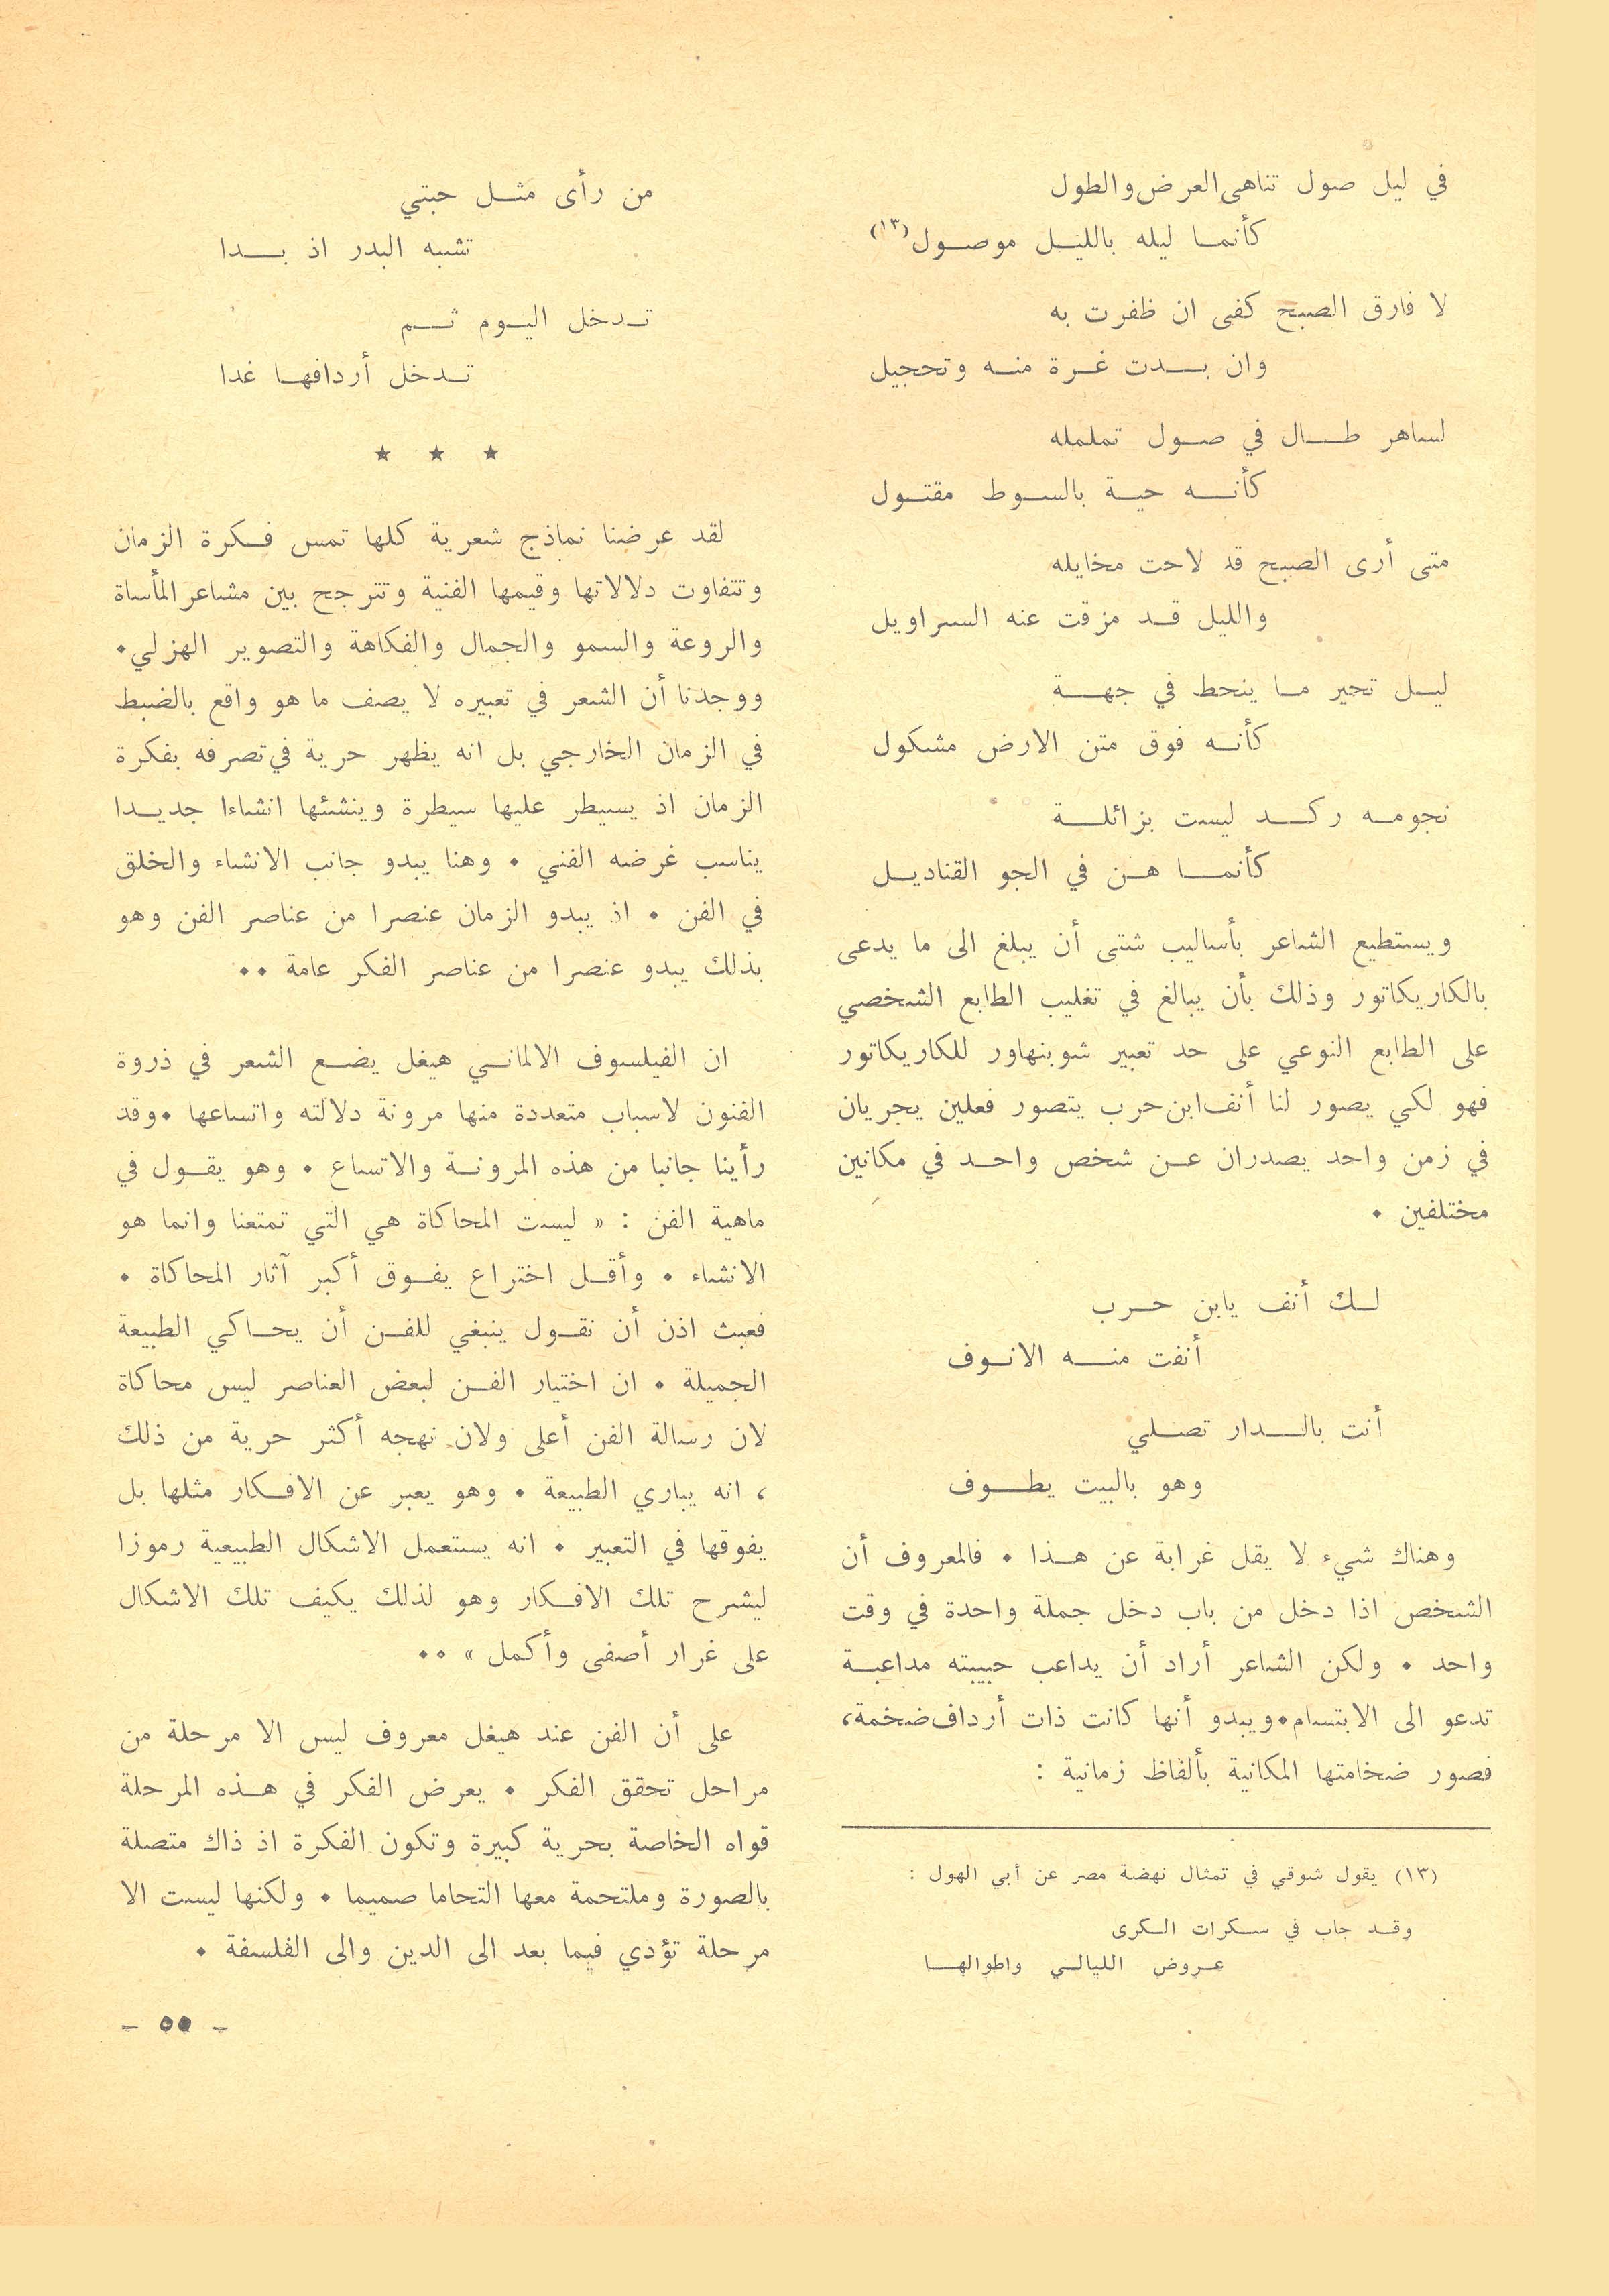 في ليل صول تناهى العرض والطول
كأنما ليله بالليل موصول (١٣)
لا فارق الصبح كفى ان ظفرت به
وان بدت غرة منه وتحجيل
لساهر طال في صول تململه
كأنه حية بالسوط مقتول
متى أرى الصبح قد لاحت مخايله
والليل قد مزقت عنه السراويل
ليل تحير ما ينحط في جهة
كأنه فوق متن الارض مشكول
نجومه ركد ليست بزائلة
كأنما هن في الجو القناديل
ويستطيع الشاعر بأساليب شتى أن يبلغ الى ما يدعى
بالكاريكاتور وذلك بأن يبالغ في تغليب الطابع الشخصي
على الطابع النوعي على حد تعبير شوبنهاور للكاريكاتور
فهو لكي يصور لنا أنف ابن حرب يتصور فعلين يجريان
في زمن واحد يصدران عن شخص واحد في مكانين
مختلفين .
لك أنف يابن حرب
أنفت منه الانوف
أنت بالدار تصلي
وهو بالبيت يطوف
وهناك شيء لا يقل غرابة عن هذا . فالمعروف أن
الشخص اذا دخل من باب دخل جملة واحدة في وقت
واحد . ولكن الشاعر أراد أن يداعب حبيبته مداعبة
تدعو الى الابتسام.ويبدو أنها كانت ذات أرداف ضخمة،
فصور ضخامتها المكانية بألفاظ زمانية :
(١٣) يقول شوقي في تمثال نهضة مصر عن أبي الهول :
وقد جاب في سكرات الكرى
عروض الليالي واطوالها
من رأى مثل حبتي
تشبه البدر اذ بدا
تدخل اليوم ثم
تدخل أردافها غدا
★ ★ ★
لقد عرضنا نماذج شعرية كلها تمس فكرة الزمان
وتتفاوت دلالاتها وقيمها الفنية وتترجح بين مشاعر المأساة
والروعة والسمو والجمال والفكاهة والتصوير الهزلي.
ووجدنا أن الشعر في تعبيره لا يصف ما هو واقع بالضبط
في الزمان الخارجي بل انه يظهر حرية في تصرفه بفكرة
الزمان اذ يسيطر عليها سيطرة وينشئها انشاءا جديدا
يناسب غرضه الفني . وهنا يبدو جانب الانشاء والخلق
في الفن . اذ يبدو الزمان عنصرا من عناصر الفن وهو
بذلك يبدو عنصرا من عناصر الفكر عامة ..
ان الفيلسوف الالماني هيغل يضع الشعر في ذروة
الفنون لاسباب متعددة منها مرونة دلالته واتساعها .وقد
رأينا جانبا من هذه المرونة والاتساع . وهو يقول في
ماهية الفن : « ليست المحاكاة هي التي تمتعنا وانما هو
الانشاء . وأقل اختراع يفوق أكبر آثار المحاكاة .
فعبث اذن أن نقول ينبغي للفن أن يحاكي الطبيعة
الجميلة . ان اختيار الفن لبعض العناصر ليس محاكاة
لان رسالة الفن أعلى ولان نهجه أكثر حرية من ذلك
، انه يباري الطبيعة . وهو يعبر عن الافكار مثلها بل
يفوقها في التعبير . انه يستعمل الاشكال الطبيعية رموزا
ليشرح تلك الافكار وهو لذلك يكيف تلك الاشكال
على غرار أصفى وأكمل » ..
على أن الفن عند هيغل معروف ليس الا مرحلة من
مراحل تحقق الفكر . يعرض الفكر في هذه المرحلة
قواه الخاصة بحرية كبيرة وتكون الفكرة اذ ذاك متصلة
بالصورة وملتحمة معها التحاما صميما . ولكنها ليست الا
مرحلة تؤدي فيما بعد الى الدين والى الفلسفة .
- ٥٥ -